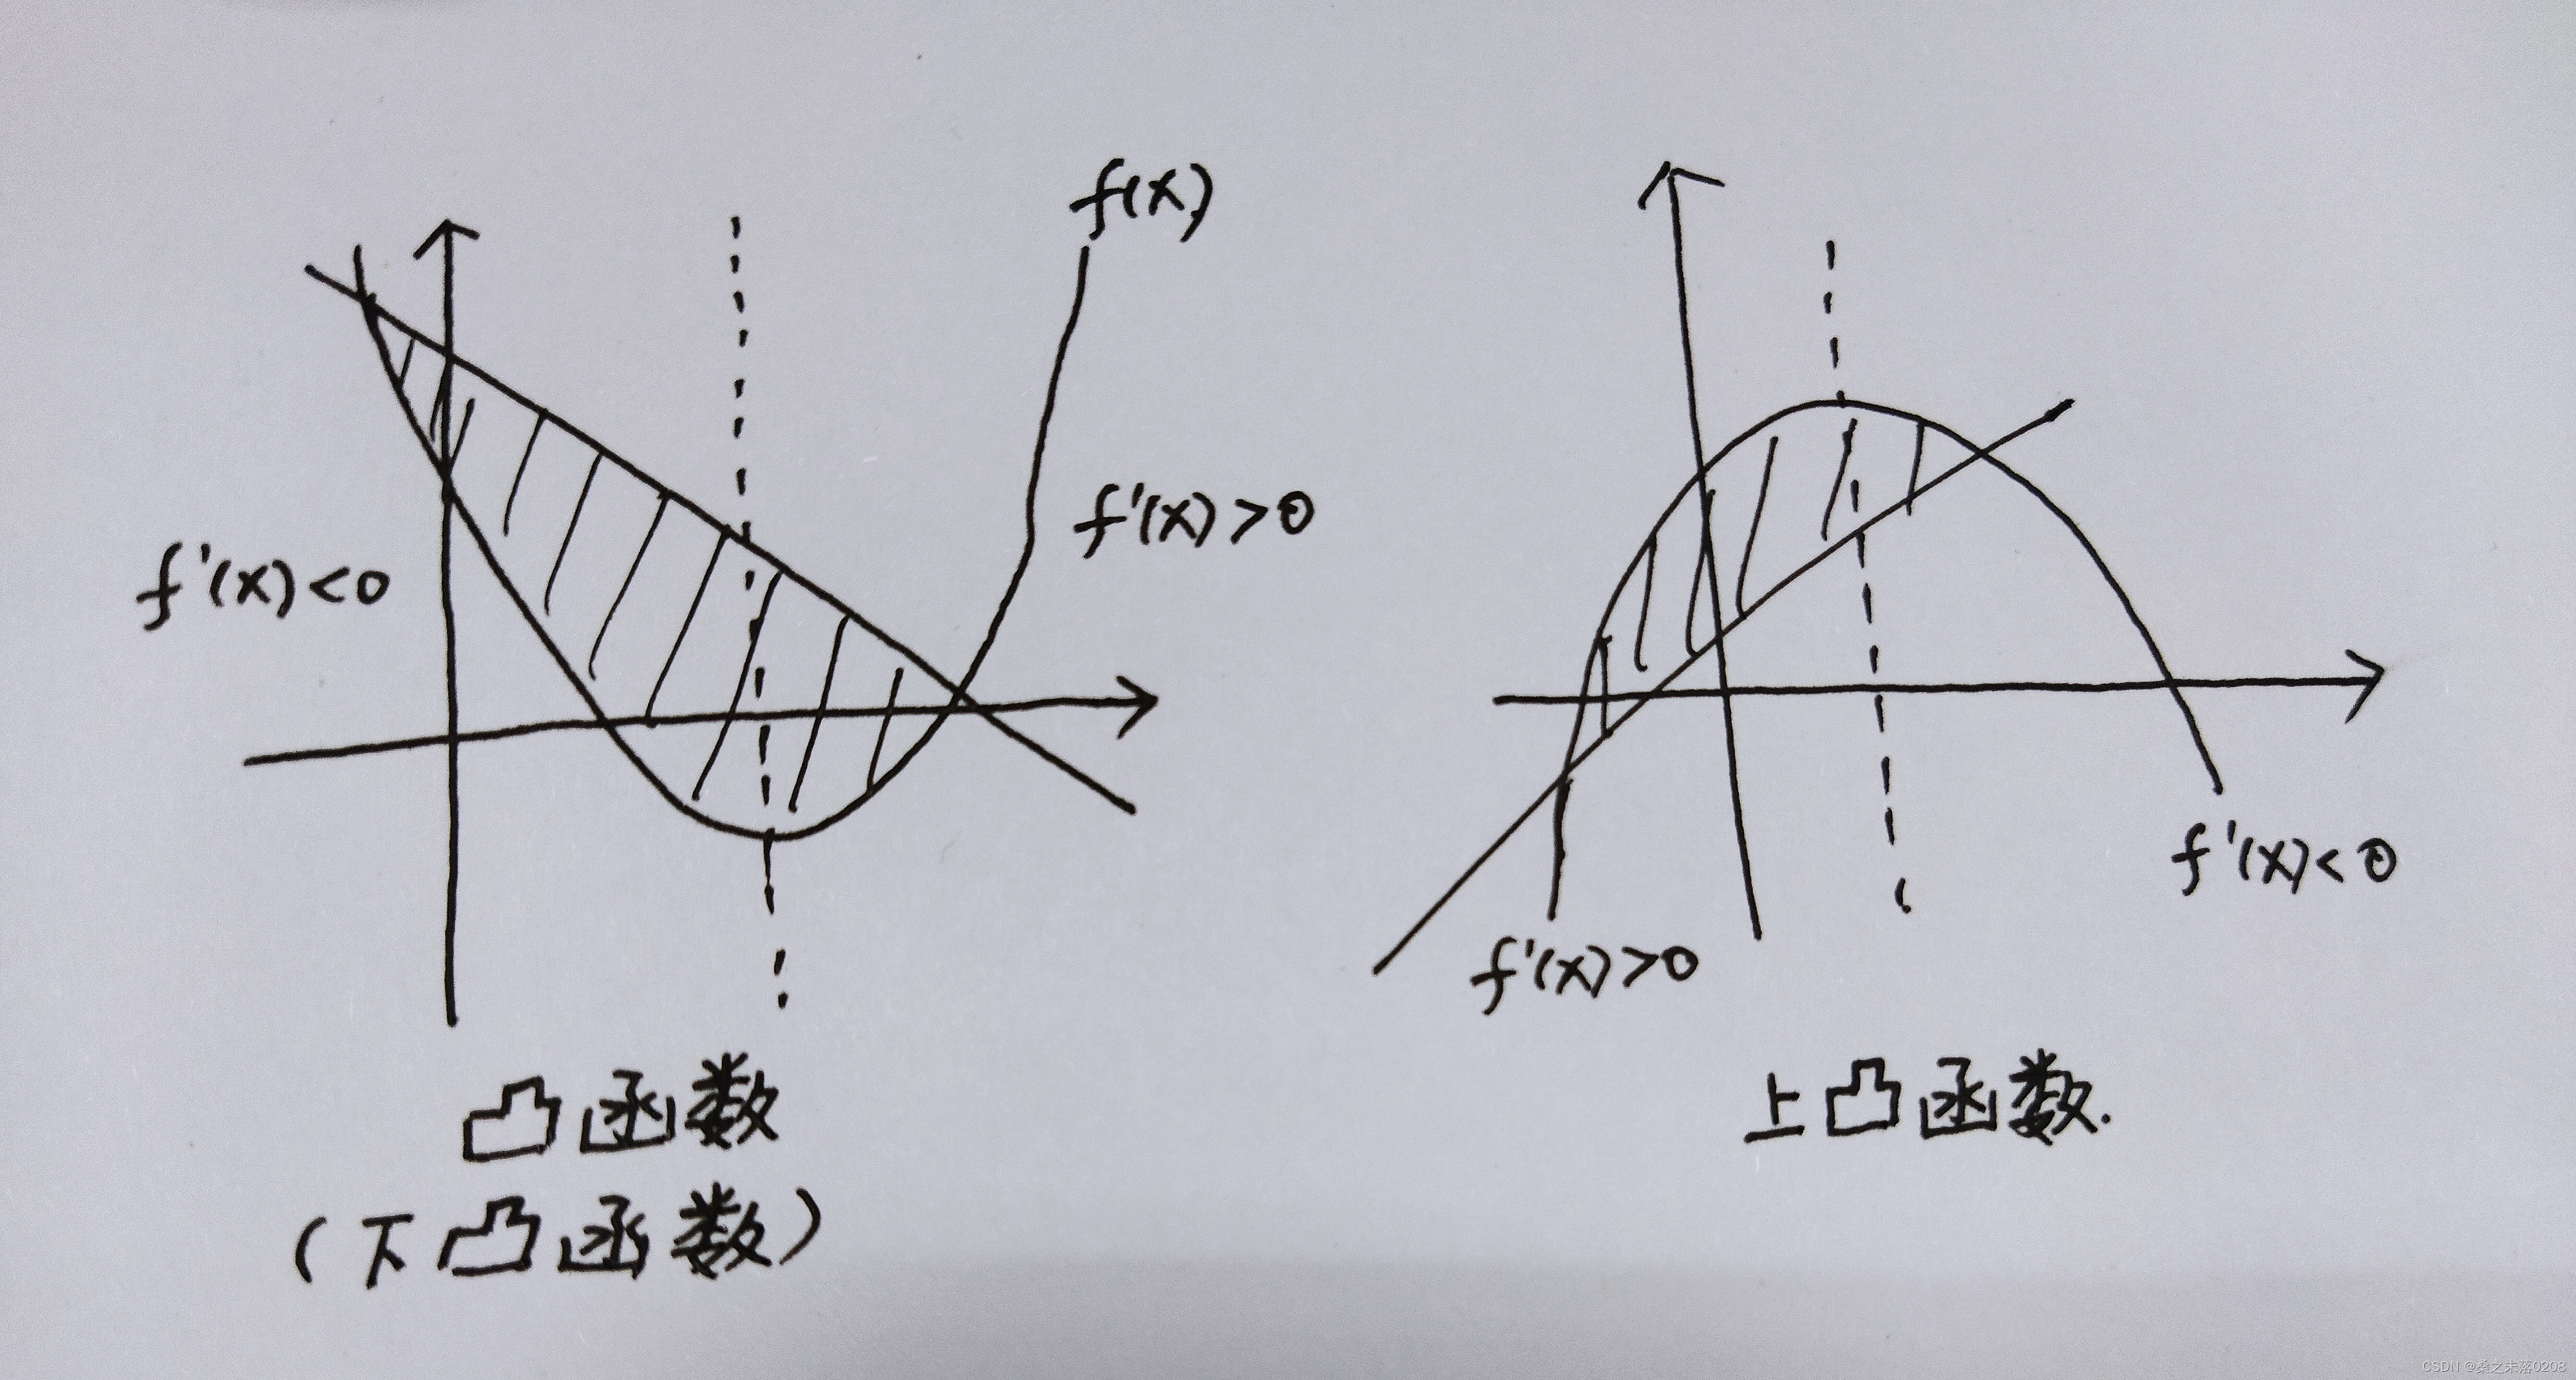 f(x)
f'(x)>0
f'(x)<0
凸函数
(下凸函数)
f'(x)<0
f'(x)>0
上凸函数.
CSDN @桑之未落0208